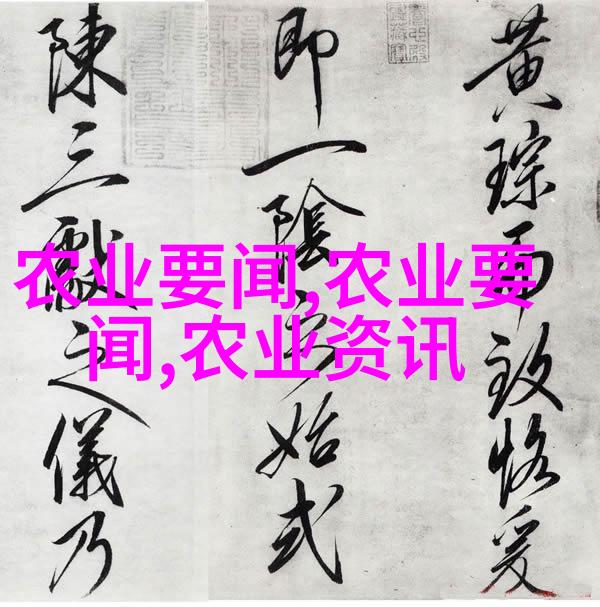 黄琮而致恪爰
即一陰之始式
陳三獻之儀乃
农业要闻,农业要
闻,农业资讯